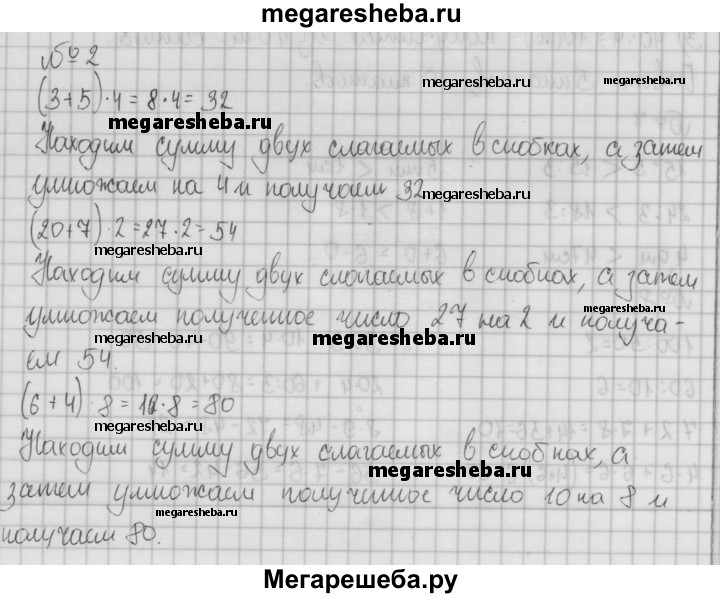 megaresheba.ru
№ 2
megaresheba.ru
megaresheba.ru
(3+5)·4=8·4=32
megaresheba.ru
Находим сумму двух слагаемых в скобках, а затем
умножаем на 4 и получаем 32
megaresheba.ru
(20+7)·2=27·2=54
megaresheba.ru
Находим сумму двух слагаемых в скобках, а затем
умножаем полученное число 27 на 2 и получа-
megaresheba.ru
megaresheba.ru
ем 54.
(6+4)·8=10·8=80
megaresheba.ru
Находим сумму двух слагаемых в скобках, а
megaresheba.ru
затем умножаем полученное число 10 на 8 и
megaresheba.ru
получаем 80.
Мегарешеба.ру